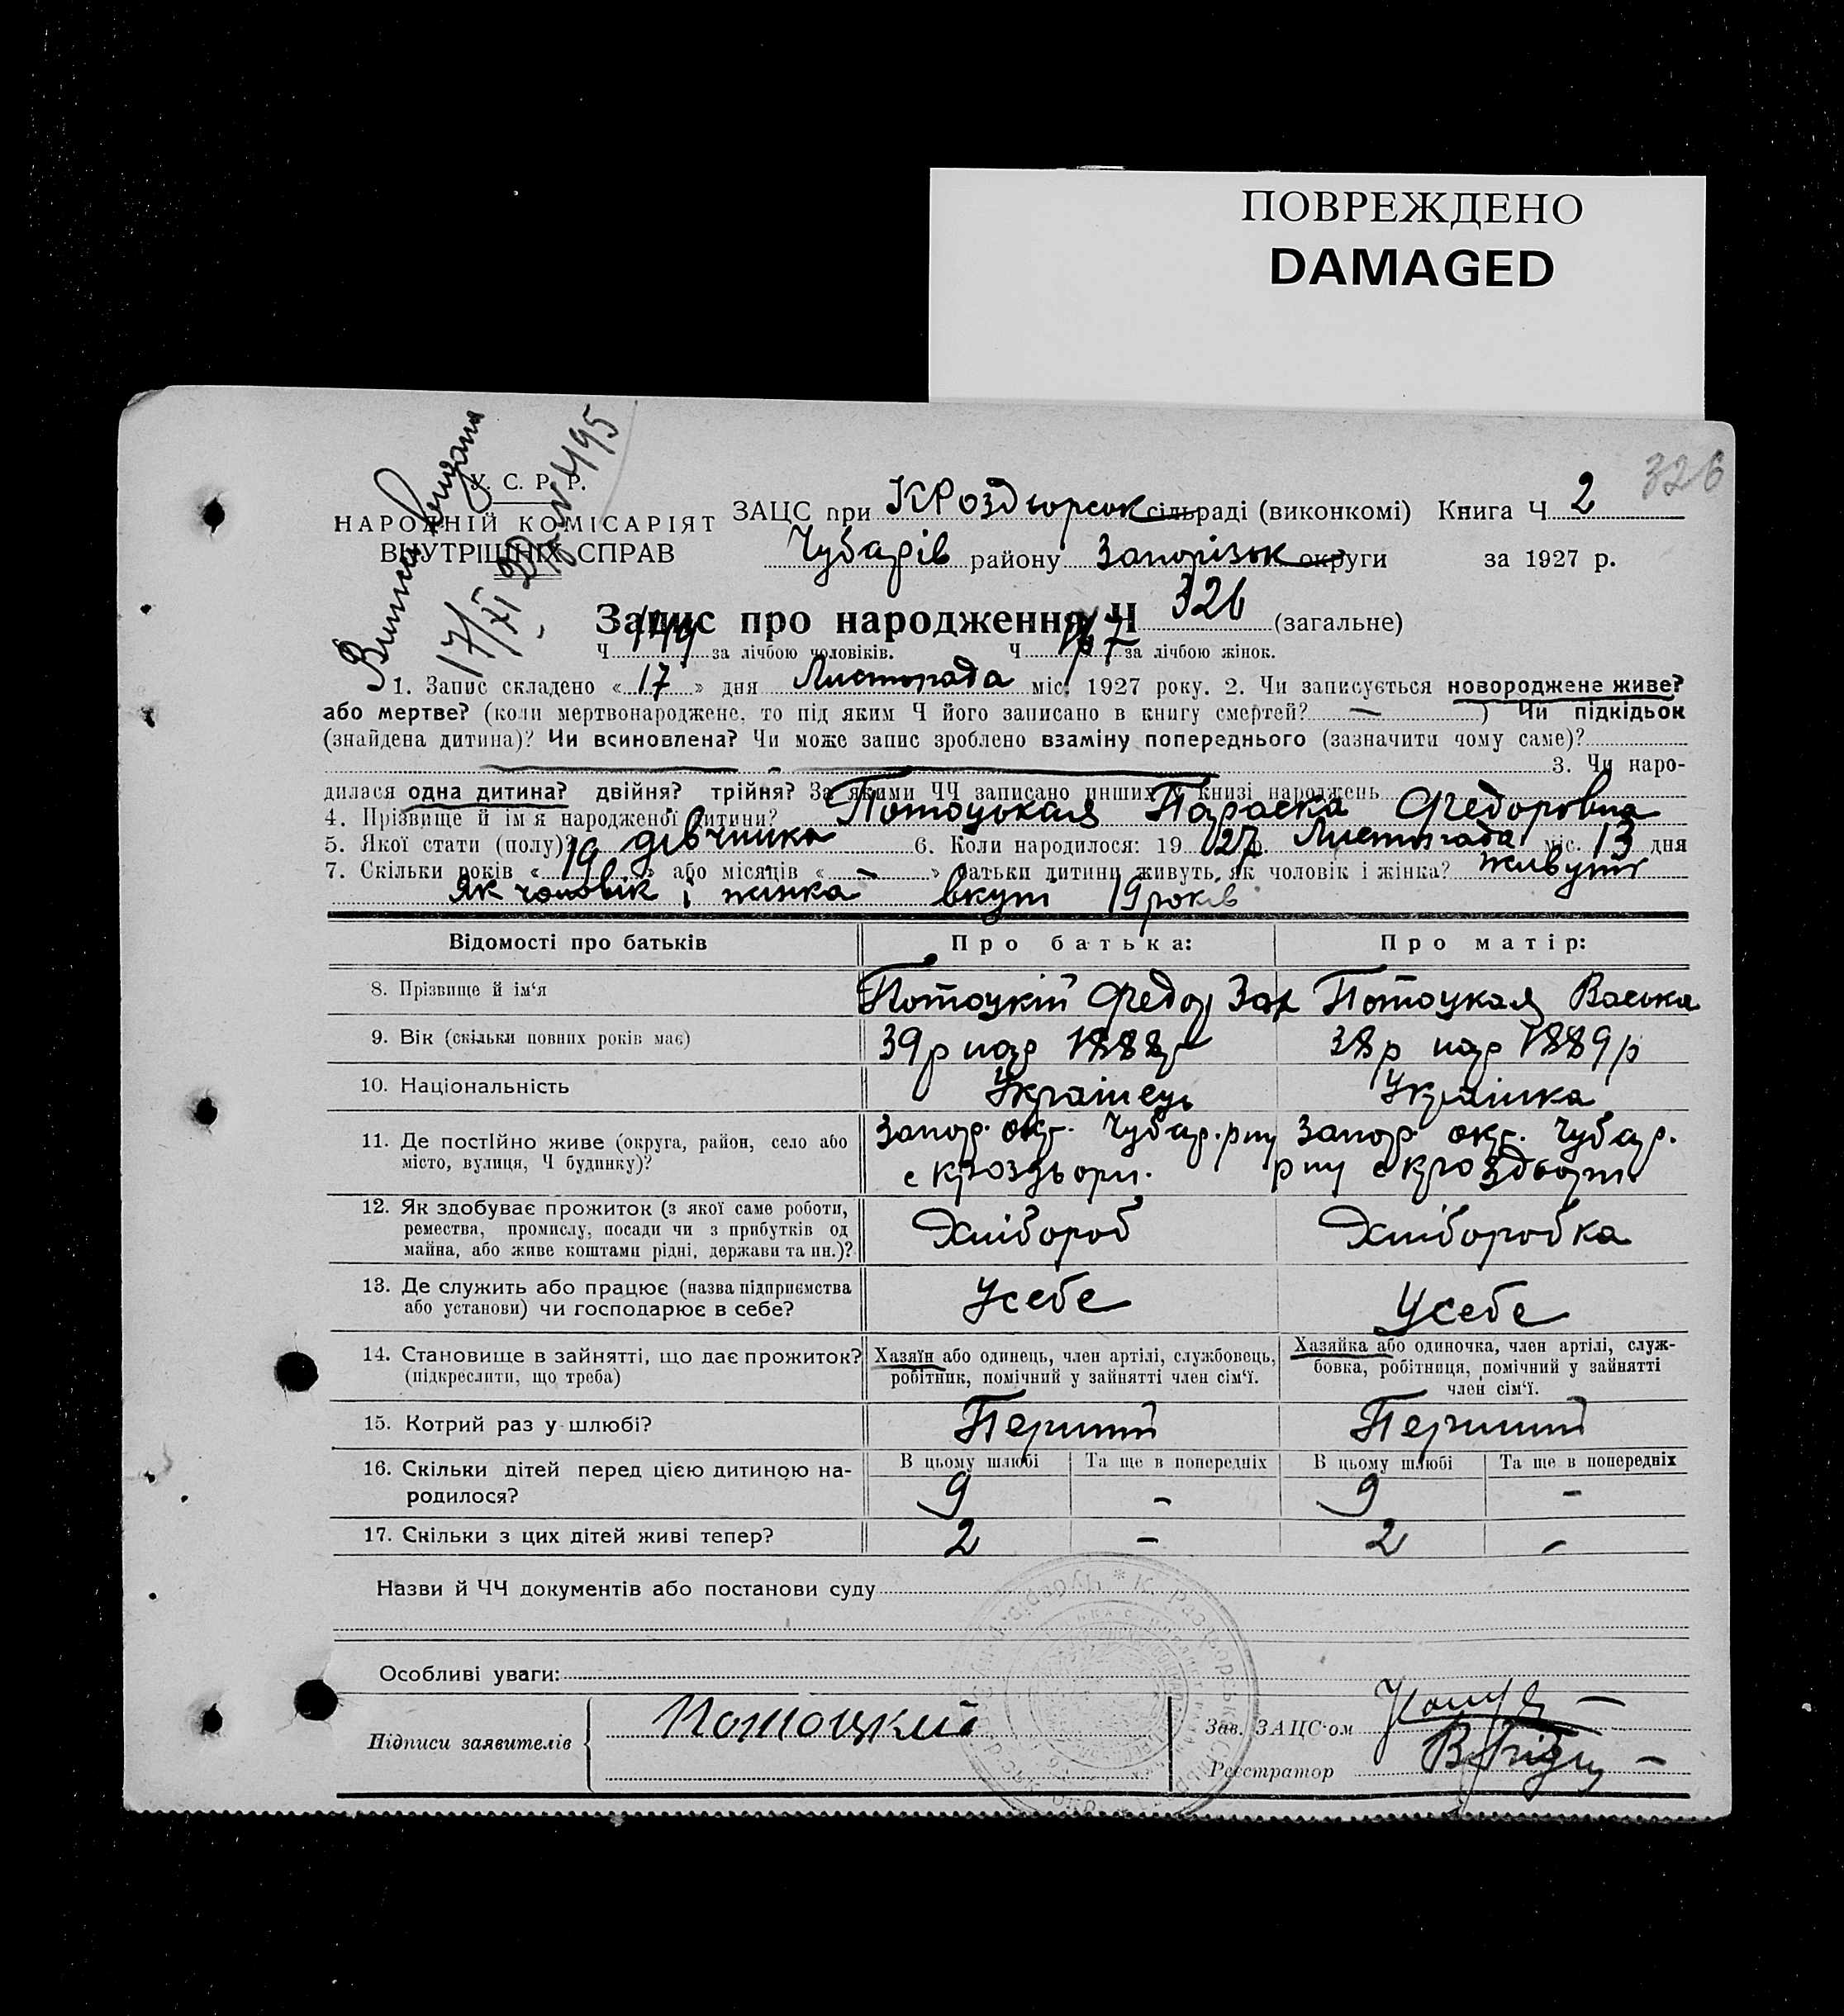 ПОВРЕЖДЕНО
DAMAGED
326
У. С. Р. Р.
НАРОДНІЙ КОМІСАРІЯТ
ВНУТРІШНІХ СПРАВ
17/XI
ЗАЦС при КРоздгорськ сільраді (виконкомі) Книга Ч 2
Чубарів району Запорізьк округи за 1927 р.
Запис про народження Ч 326 (загальне)
Ч за лічбою чоловіків. Ч за лічбою жінок.
1. Запис складено « 17 » дня Листопада міс. 1927 року. 2. Чи записується новороджене живе?
або мертве? (коли мертвонароджене, то під яким Ч його записано в книгу смертей? — ) Чи підкідьок
(знайдена дитина)? Чи всиновлена? Чи може запис зроблено взаміну попереднього (зазначити чому саме)?
3. Чи наро-
дилася одна дитина? двійня? трійня? За якими ЧЧ записано инших у книзі народжень
4. Прізвище й ім'я народженої дитини? Потоцькая Параска Федоровна
5. Якої стати (полу)? дівчинка 6. Коли народилося: 19 27 р. Листопада міс. 13 дня
7. Скільки років « 19 » або місяців « — » батьки дитини живуть, як чоловік і жінка? живуть
Як чоловік і жінка вкупі 19 років
Відомості про батьків Про батька: Про матір:
8. Прізвище й ім'я Потоцкій Федор Зах Потоцкая Васька
9. Вік (скільки повних років має) 39 р нар 1888 р 38 р нар 1889 р
10. Національність Українець Українка
11. Де постійно живе (округа, район, село або Запор. окр. Чубар. рну Запор. окр. Чубар.
місто, вулиця, Ч будинку)? с кроздьори. рну с кроздьори.
12. Як здобуває прожиток (з якої саме роботи,
ремества, промислу, посади чи з прибутків од Хлібороб Хлібородка
майна, або живе коштами рідні, держави та ин.)?
13. Де служить або працює (назва підприємства Усебе Усебе
або установи) чи господарює в себе?
14. Становище в зайнятті, що дає прожиток? Хазяїн або одинець, член артілі, службовець, Хазяйка або одиночка, член артілі, служ-
(підкреслити, що треба) робітник, помічний у зайнятті член сім'ї. бовка, робітниця, помічний у зайнятті
член сім'ї.
15. Котрий раз у шлюбі? Перший Перший
16. Скільки дітей перед цією дитиною на- В цьому шлюбі Та ще в попередніх В цьому шлюбі Та ще в попередніх
родилося? 9 - 9 -
17. Скільки з цих дітей живі тепер? 2 - 2 -
Назви й ЧЧ документів або постанови суду
Особливі уваги:
Підписи заявителів Потоцкий
Зав. ЗАЦС'ом
Реєстратор